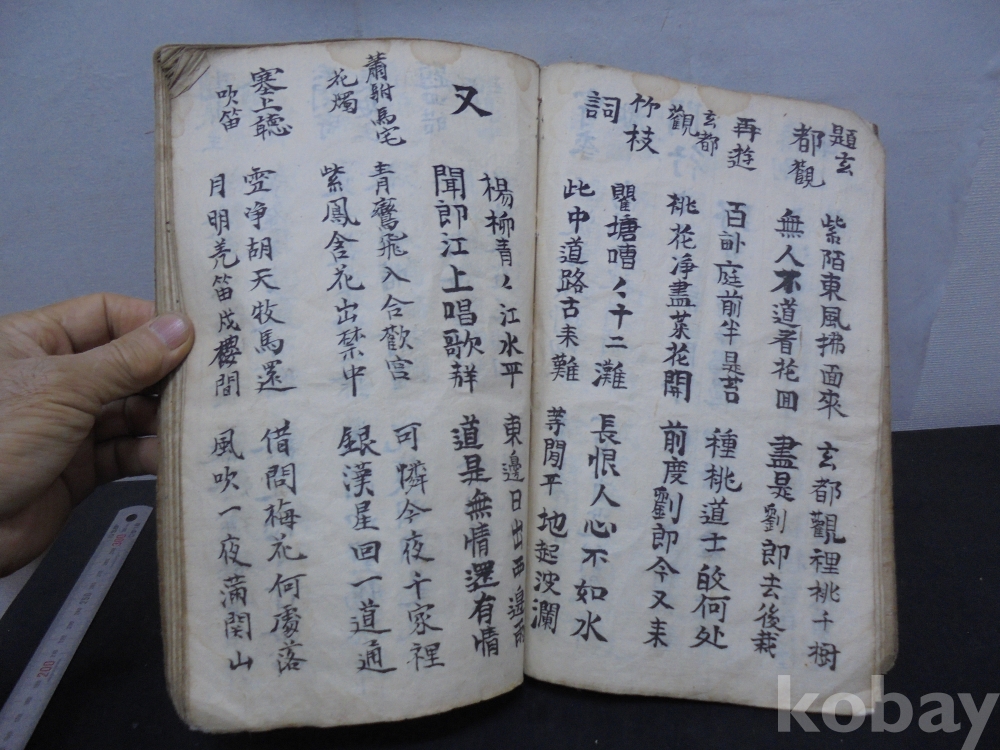 題玄
都觀
紫陌東風拂面來 玄都觀裡桃千樹
無人不道看花回 盡是劉郎去後栽
再遊
玄都
觀
百畝庭前半是苔 種桃道士皈何处
桃花凈盡菜花開 前度劉郎今又来
竹枝
詞
瞿塘嘈〻十二灘 長恨人心不如水
此中道路古来難 等閒平地起波瀾
又
楊柳青〻江水平 東邊日出西邊雨
聞郎江上唱歌声 道是無情還有情
蕭駙馬宅
花燭
青鸞飛入合歡宮 可憐今夜千家裡
紫鳳含花出禁中 銀漢星回一道通
塞上聽
吹笛
雪净胡天牧馬還 借問梅花何處落
月明羌笛戍樓間 風吹一夜滿関山
kobay